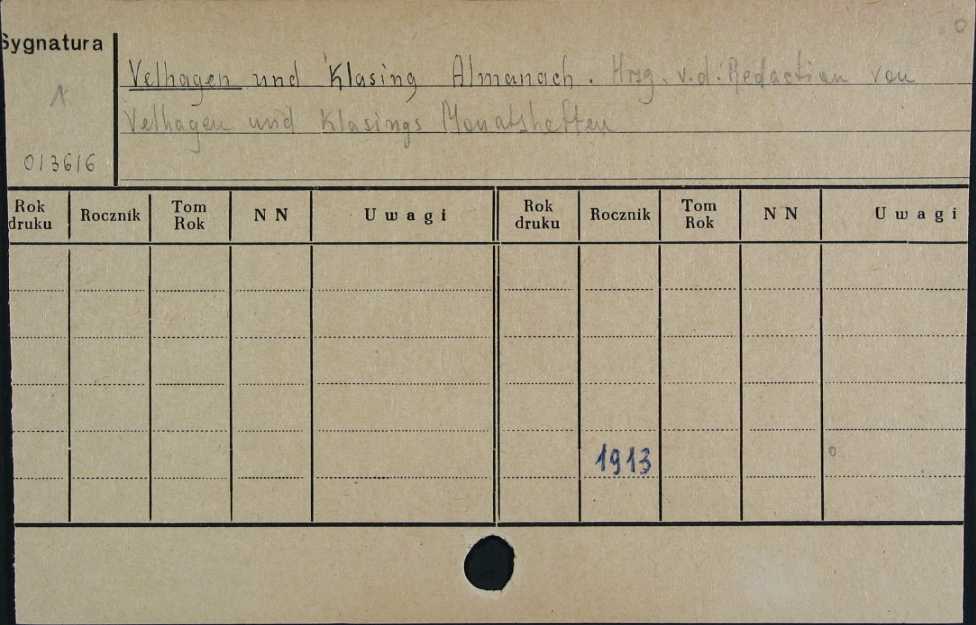 Sygnatura
1
013616
Velhagen und Klasing Almanach. Hrsg. v.d. Redaction von
Velhagen und Klasings Monatsheften
Rok druku Rocznik Tom Rok NN Uwagi Rok druku Rocznik Tom Rok NN Uwagi
1913